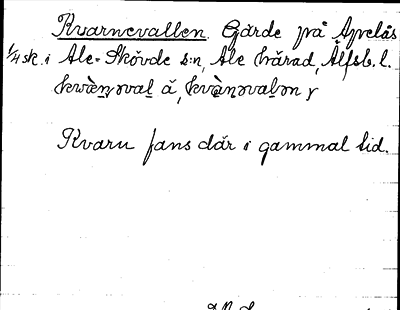 Kvarnevallen. Gärde på Apelås
1/4 sk. i Ale-Skövde s:n, Ale härad, Älfsb. l.
Kvarn fans där i gammal tid.